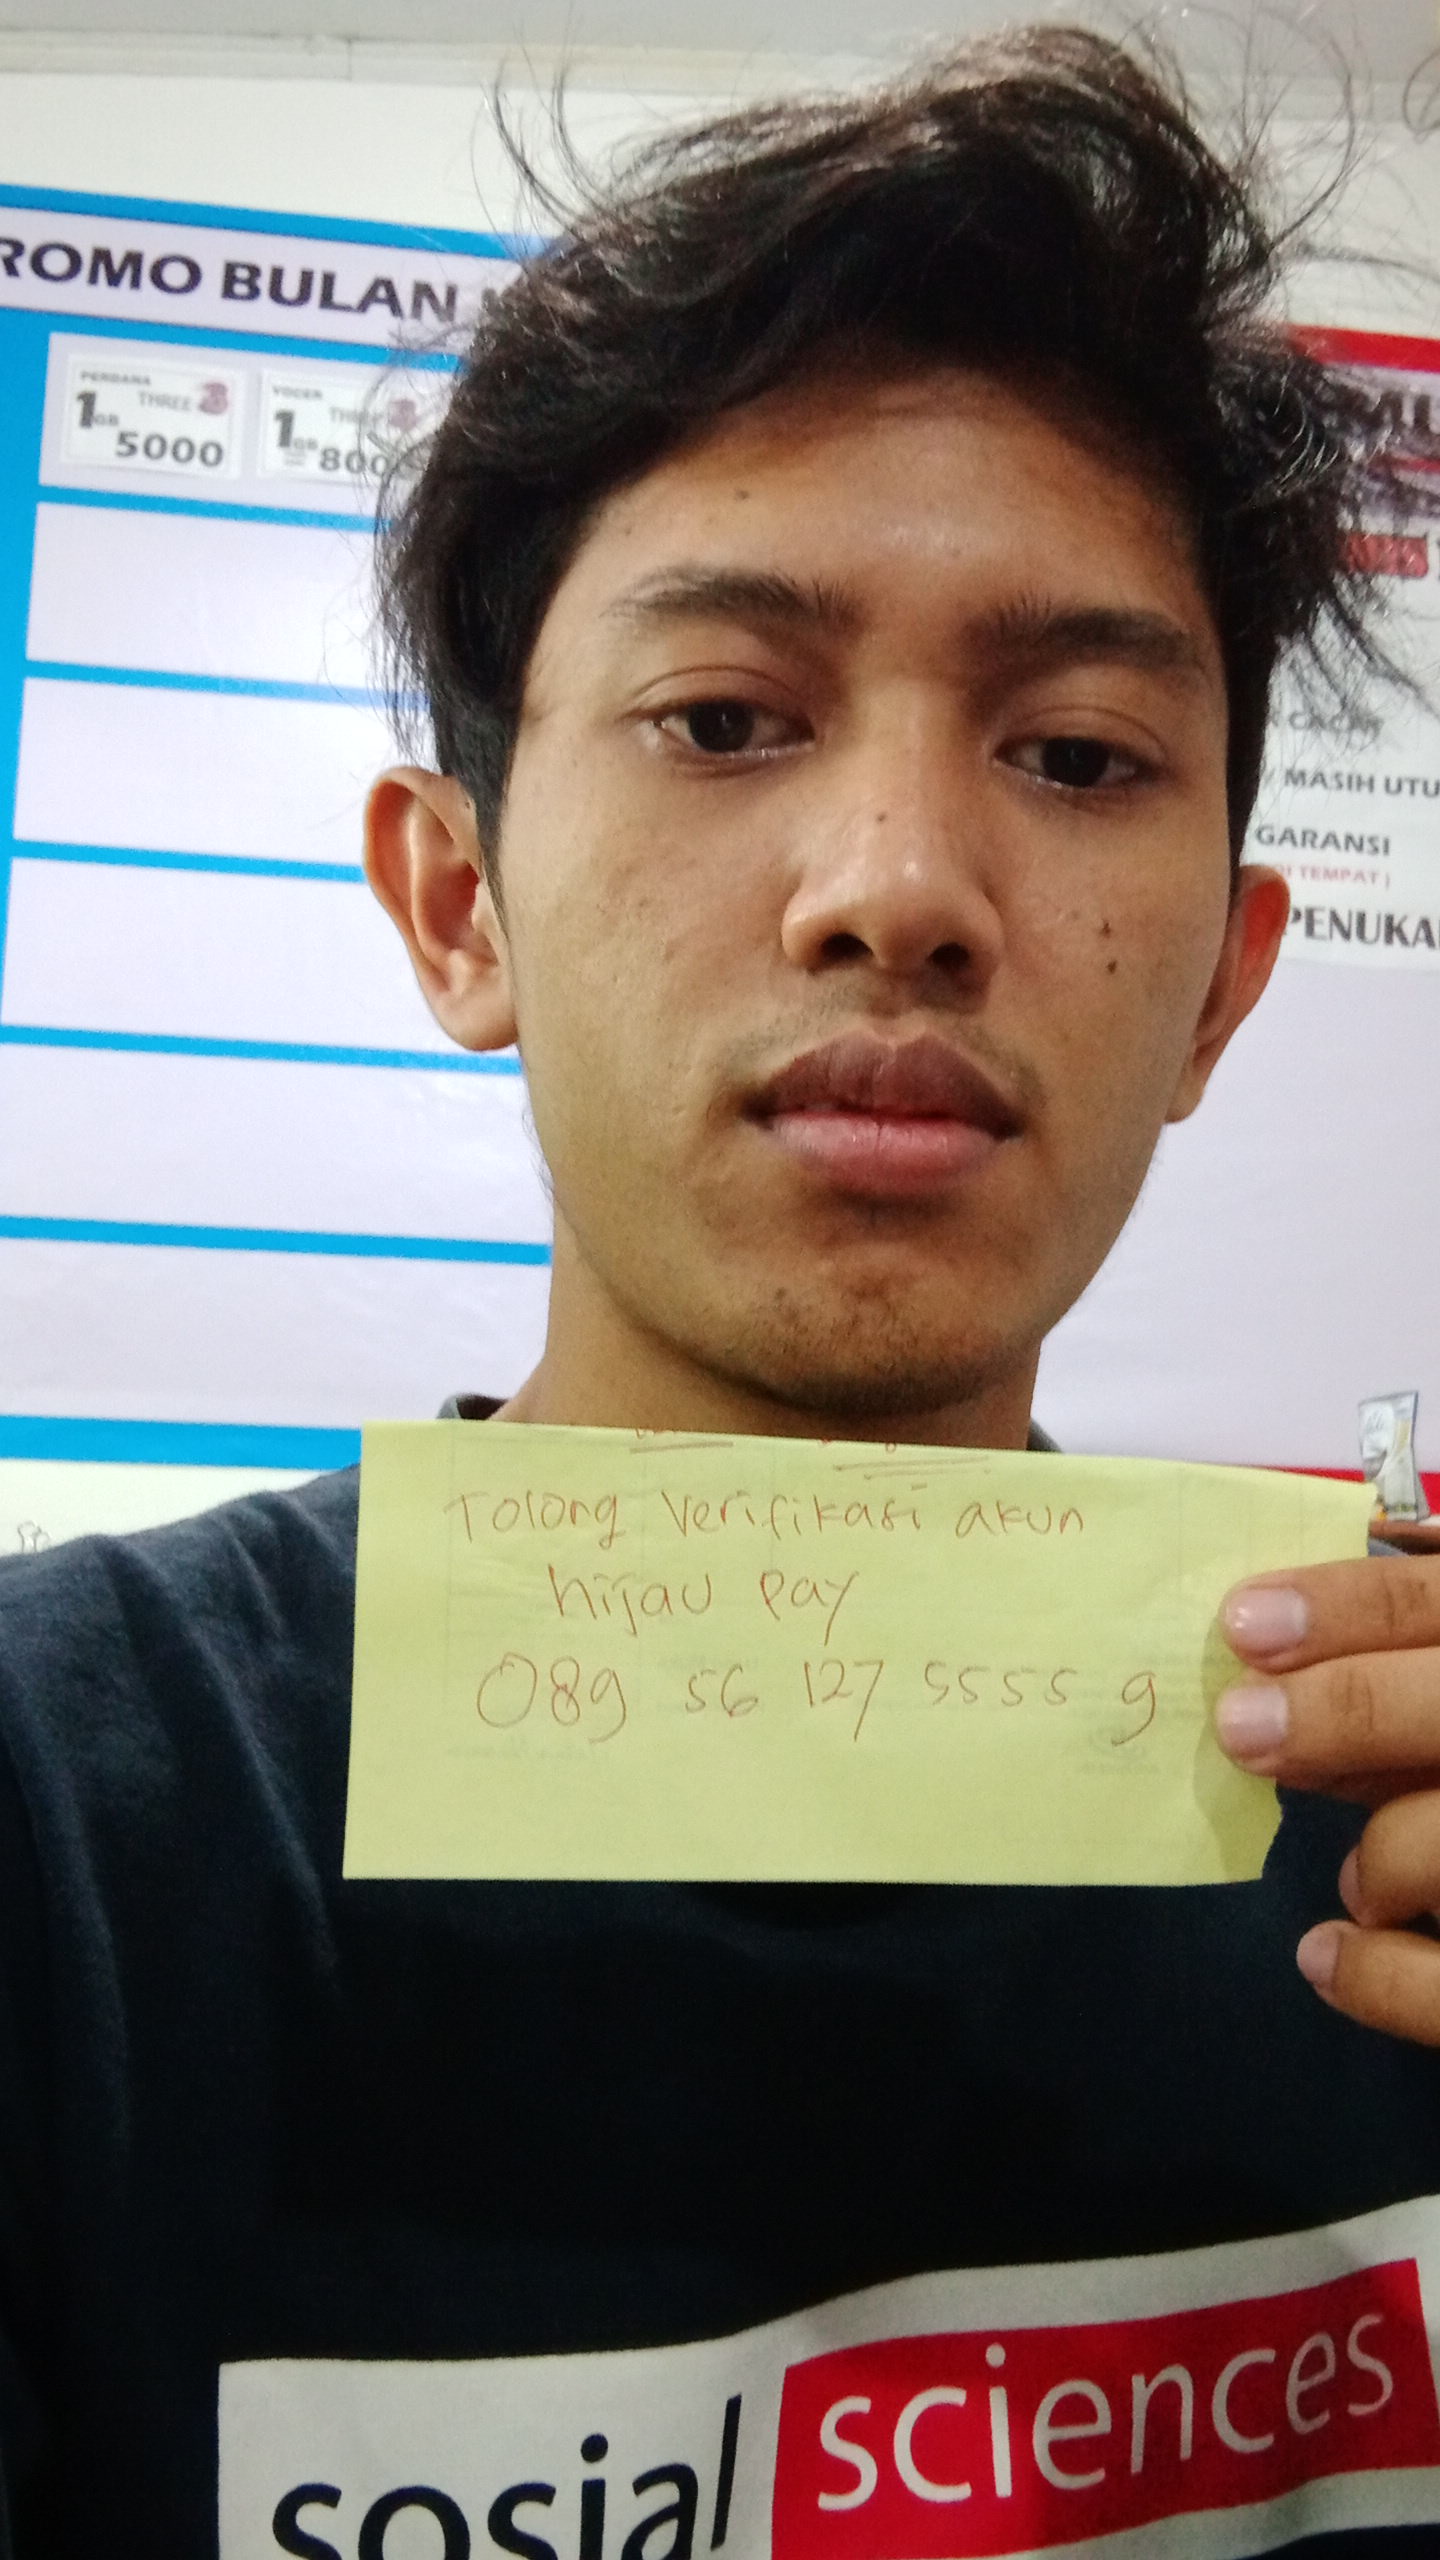 ROMO BULAN
PERDANA
1GB THREE 3
5000
VOCER
1GB
MASIH UTU
GARANSI
DI TEMPAT )
PENUKA
Tolong Verifikasi akun
hijau pay
089 56 127 5555 9
sosial sciences